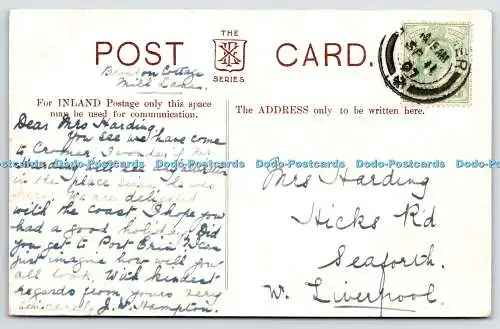 POST CARD.
THE
SERIES
Cottage
Mill Lane
For INLAND Postage only this space
may be used for communication.
The ADDRESS only to be written here.
Dear Mrs Harding
You see we have come
to Cromer I wonder if Mr
Harding will see any
in the place since he was
We are delighted
with the coast I hope you
had a good holiday Did
you get to Port Erin? I can
just imagine how well you
all look. With kindest
regards from yours very
sincerely J. W. Hampton.
Mrs Harding
Hicks Rd
Seaforth
Nr. Liverpool.
Dodo-Postcards Dodo-Postcards Dodo-Postcards Dodo-Postcards Dodo-Postcards Dodo-Postcards